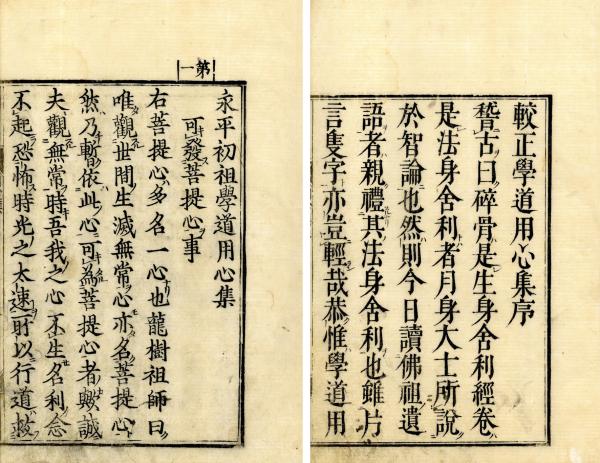 較正學道用心集序
稽古曰碎骨是生身舍利經卷
是法身舍利者月身大士所說
於智論也然則今日讀佛祖遺
語者親禮其法身舍利也雖片
言隻字亦豈輕哉恭惟學道用
第一
永平初祖學道用心集
可發菩提心事
右菩提心多名一心也龍樹祖師曰
唯觀世間生滅無常心亦名菩提心
然乃暫依此心可為菩提心者歟誠
夫觀無常時吾我之心不生名利念
不起恐怖時光之太速所以行道救